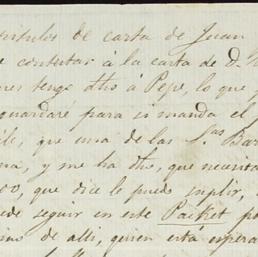 capitulos de carta de Juan
contestar á la carta de d.
tengo dho á Pepe, lo que
guardaré para si manda el
que una de las S.as Bar
na, y me ha dho, que necesita
00, que dice le puedo suplir,
ede seguir en este Packet po
ino de alli, quien está espera